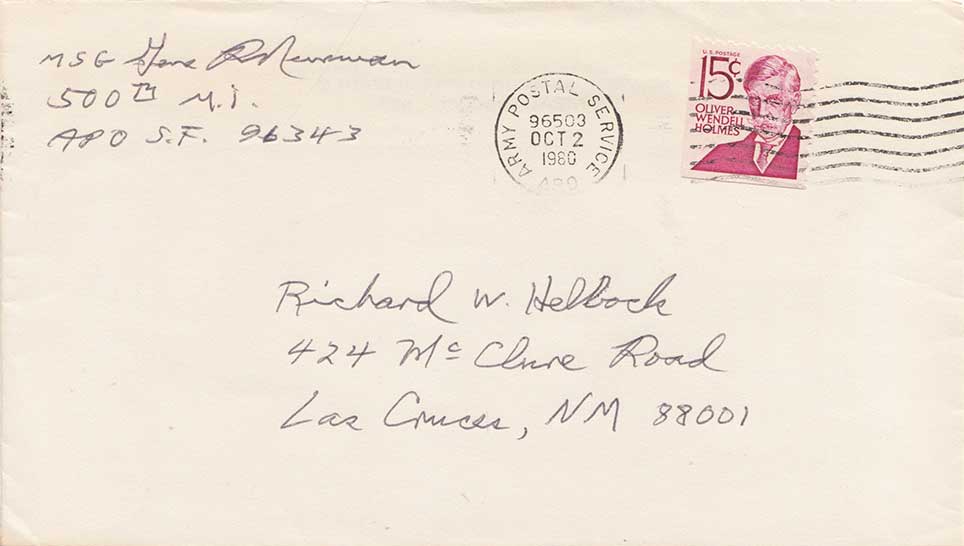 MSG Gene R Newman
500TH M.I.
APO S.F. 96343
ARMY POSTAL SERVICE
96503
OCT 2
1980
APO
U.S. POSTAGE
15¢
OLIVER
WENDELL
HOLMES
Richard W. Helbock
424 Mc Clure Road
Las Cruces, NM 88001